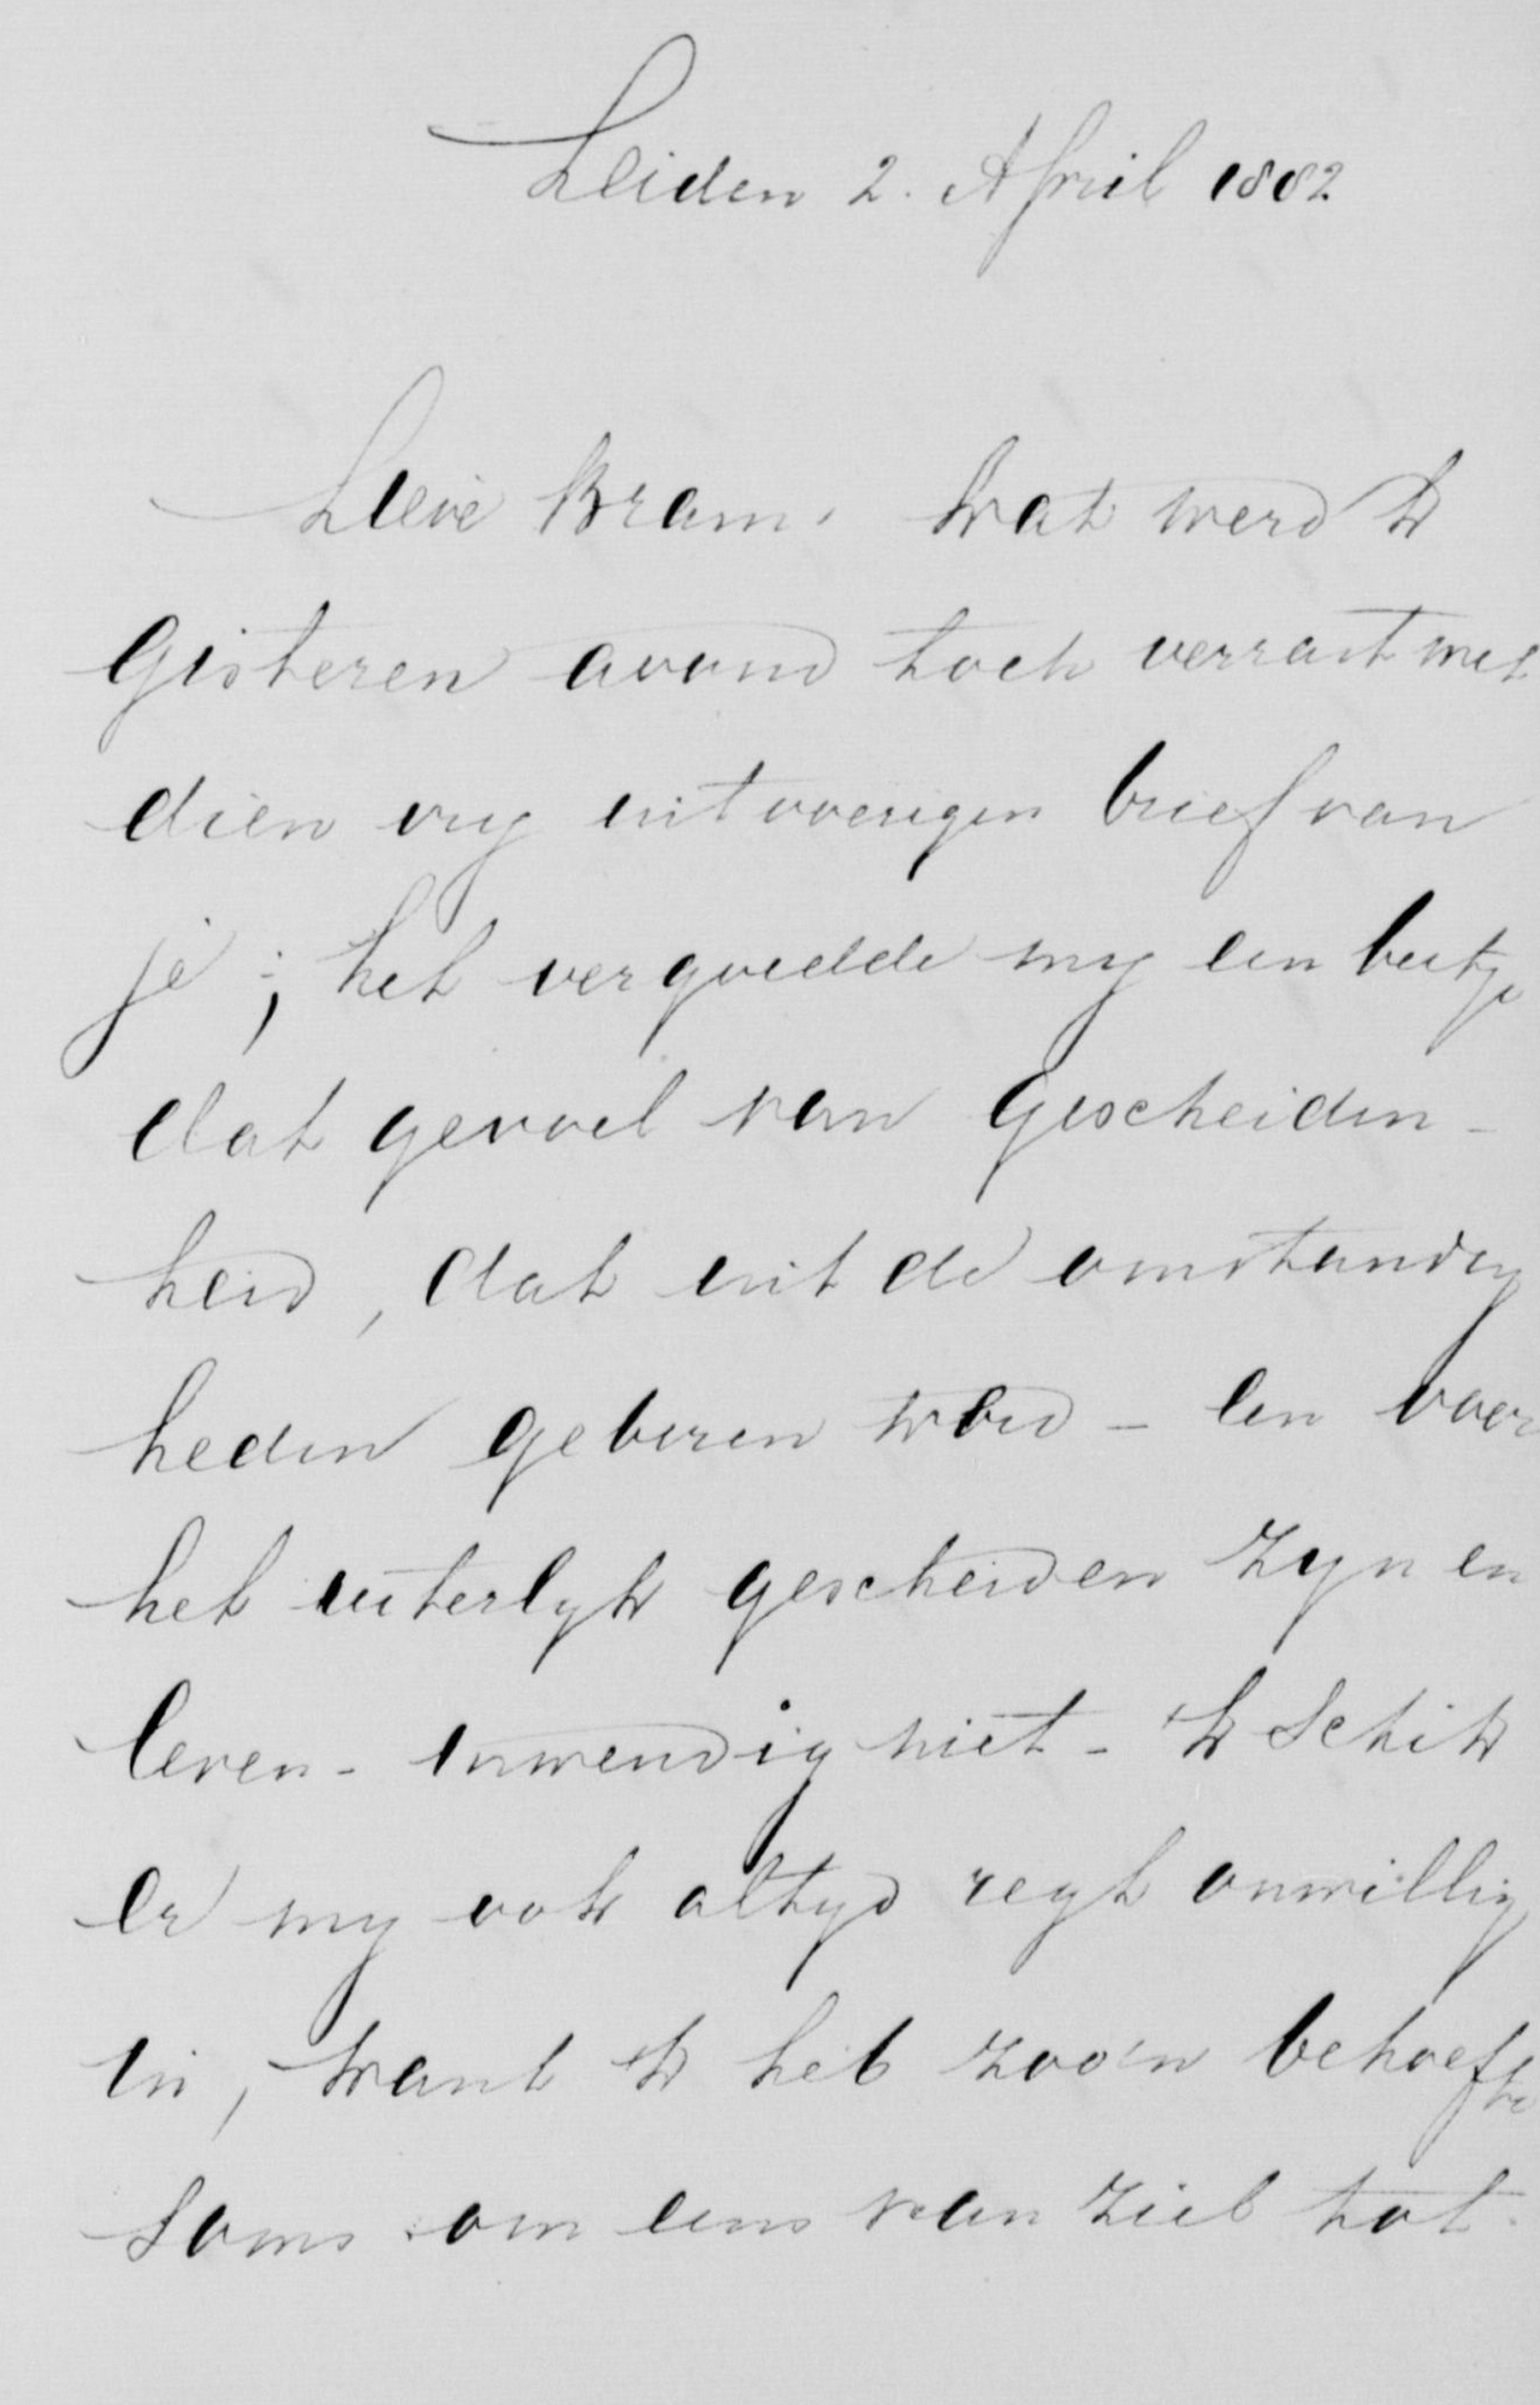 Leiden 2. April 1882
Lieve Bram, Wat werd ik
gisteren avond toch verrast met
dien vry uitvoerigen brief van
je; het vergoedde my een beetje
dat gevoel van gescheiden-
heid, dat uit de omstandig
heden geboren word - en voor
het uiterlyk gescheiden zyn en
leven - inwendig niet - ik schik
er my ook altyd regt onwillig
in, want ik heb zoo'n behoefte
soms om eens van ziel tot